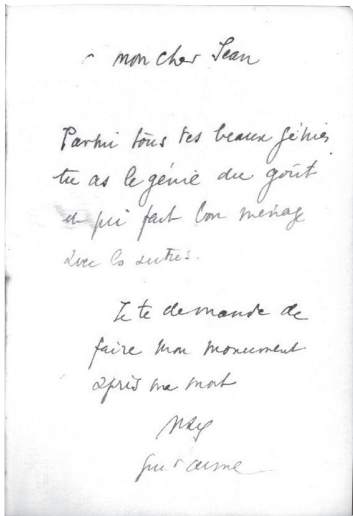 mon cher Jean
Parmi tous tes beaux génies
tu as le génie du goût
et qui fait bon ménage
avec les autres.
Je te demande de
faire mon monument
après ma mort
Max
qui t'aime